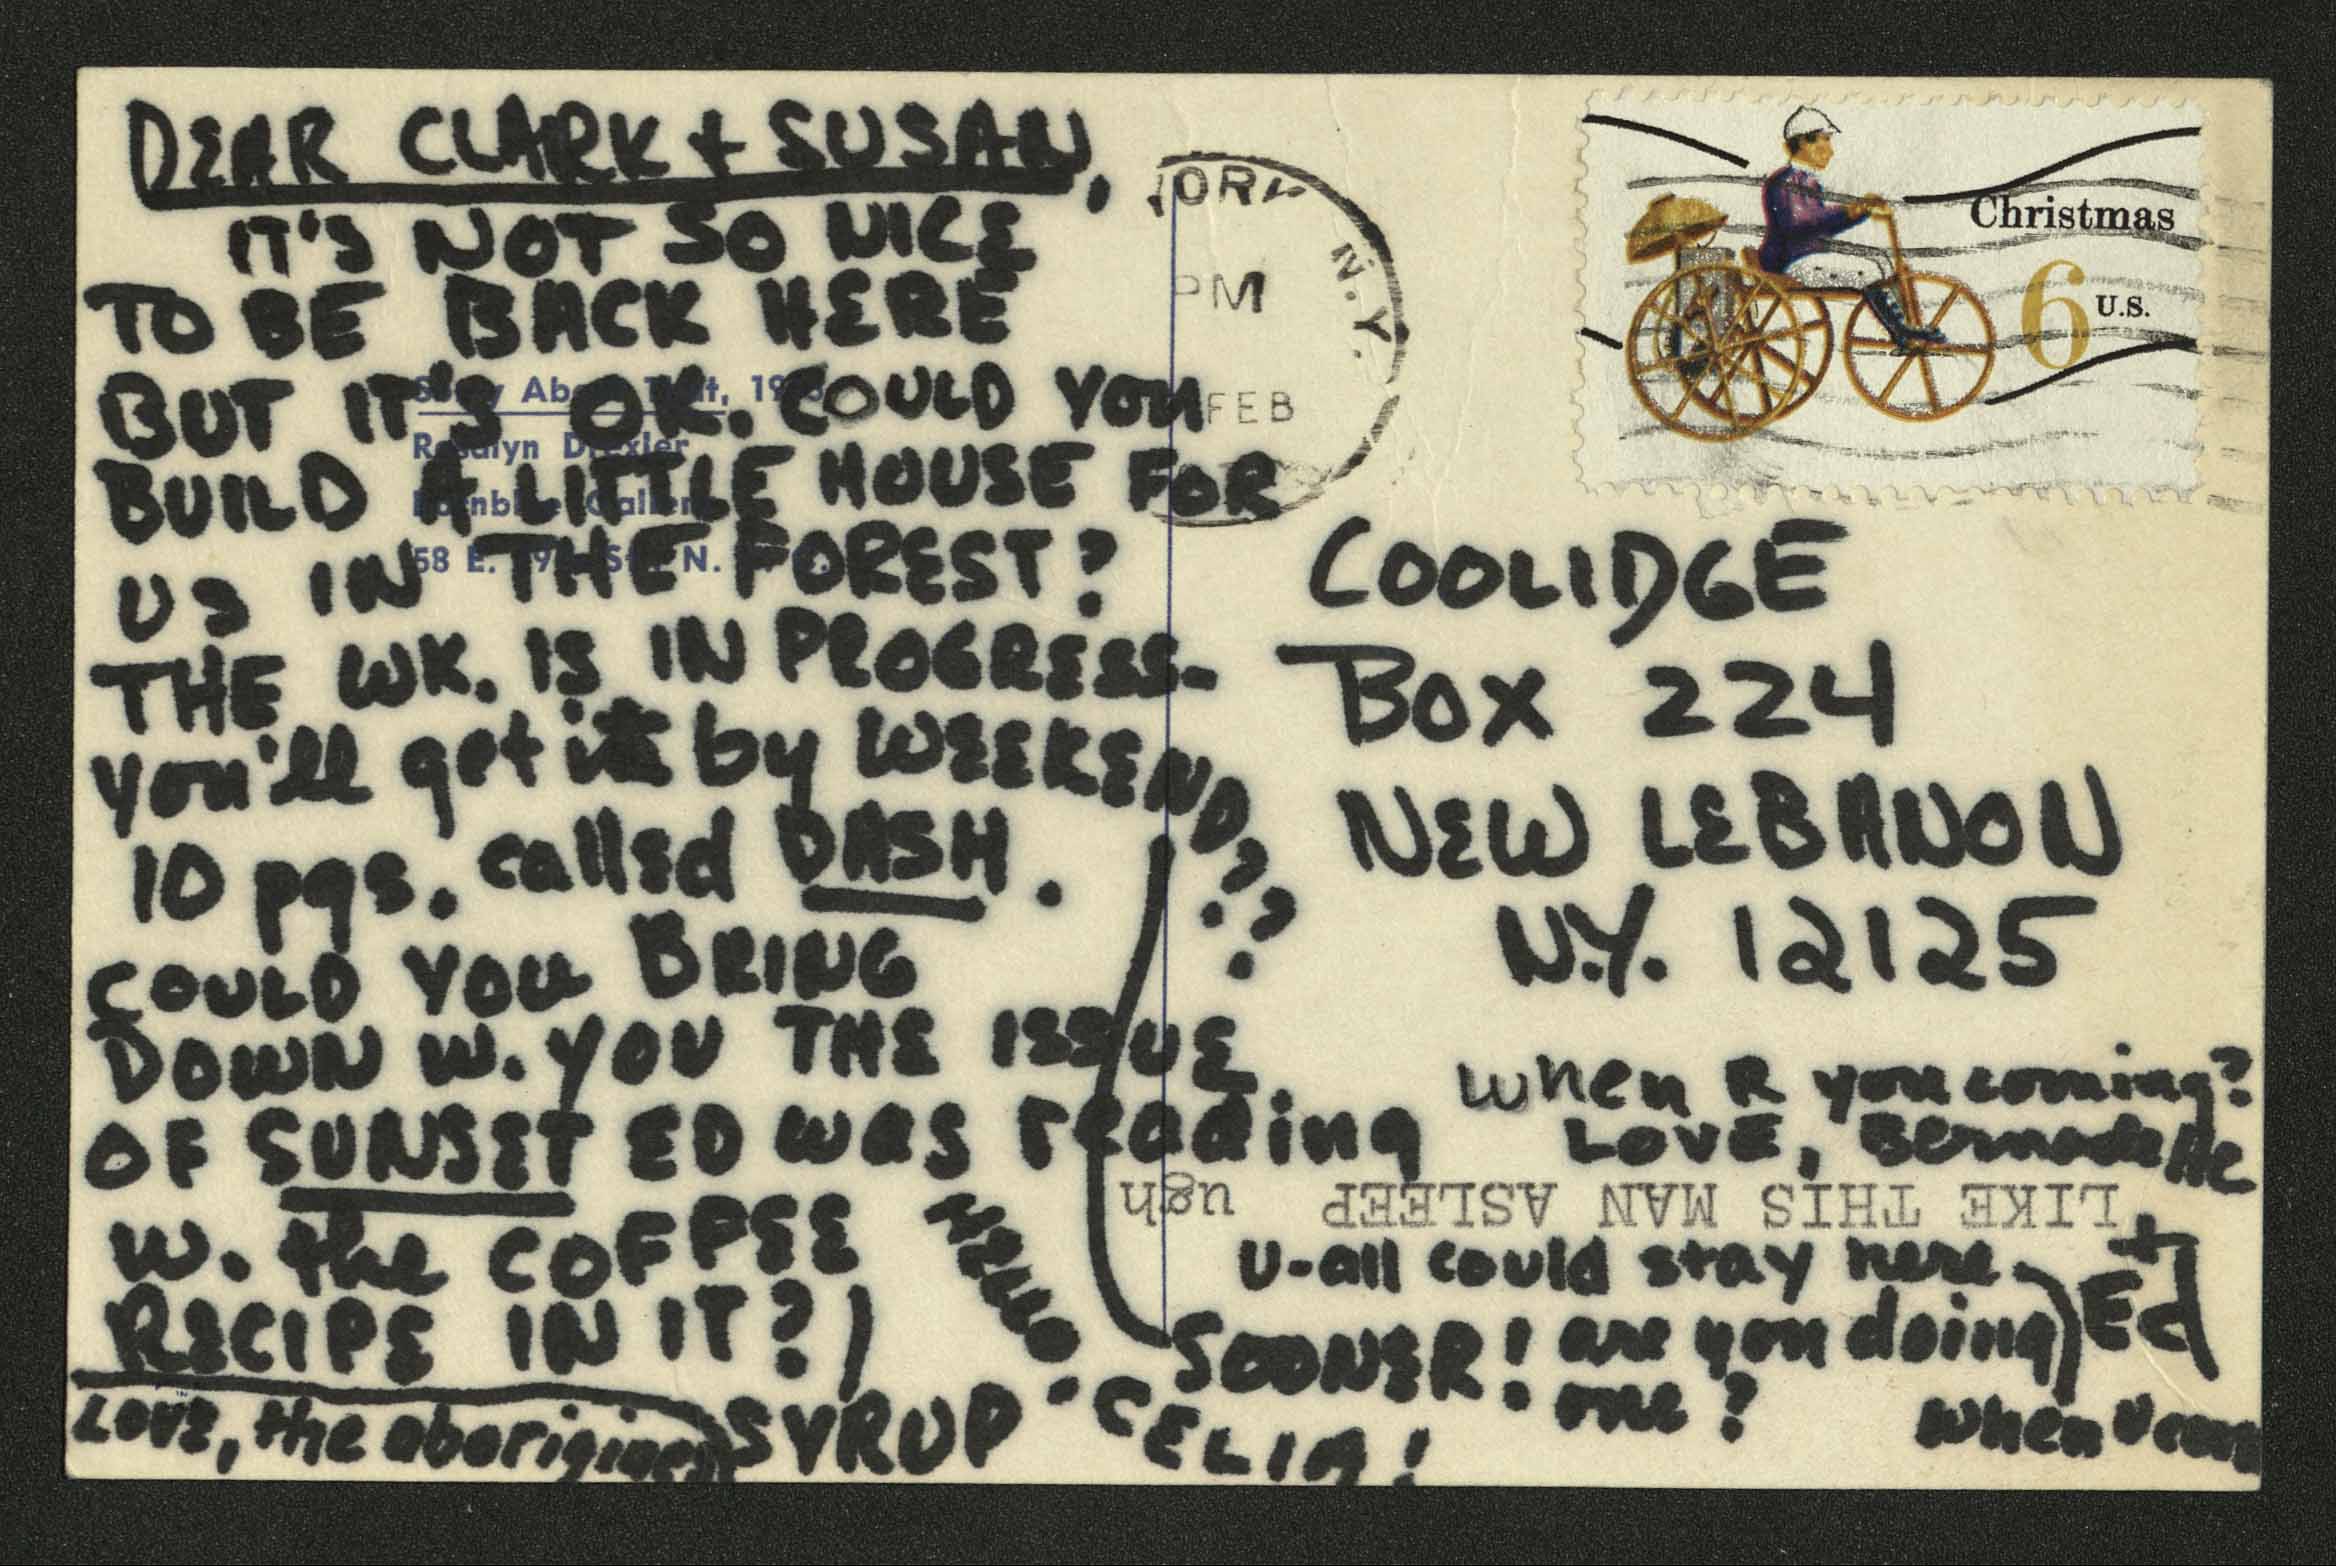 DEAR CLARK + SUSAN,
IT'S NOT SO NICE
TO BE BACK HERE
BUT IT'S OK. COULD YOU
BUILD A LITTLE HOUSE FOR
US IN THE FOREST?
THE WK. IS IN PROGRESS-
you'll get it by WEEKEND???
10 pgs. called DASH.
COULD YOU BRING
DOWN W. YOU THE ISSUE
OF SUNSET ED was reading
w. the COFFEE
RECIPE IN IT?)
Love, the aborigines
SYRUP
HELLO CELIA!
Rosalyn Drexler
58 E. St. N.
YORK N.Y.
PM
FEB
Christmas
6 U.S.
COOLIDGE
BOX 224
NEW LEBANON
N.Y. 12125
When R you coming?
LOVE, Bernadette
+ Ed
LIKE THIS MAN ASLEEP ugh
U-all could stay here
SOONER! are you doing
one?
When U come